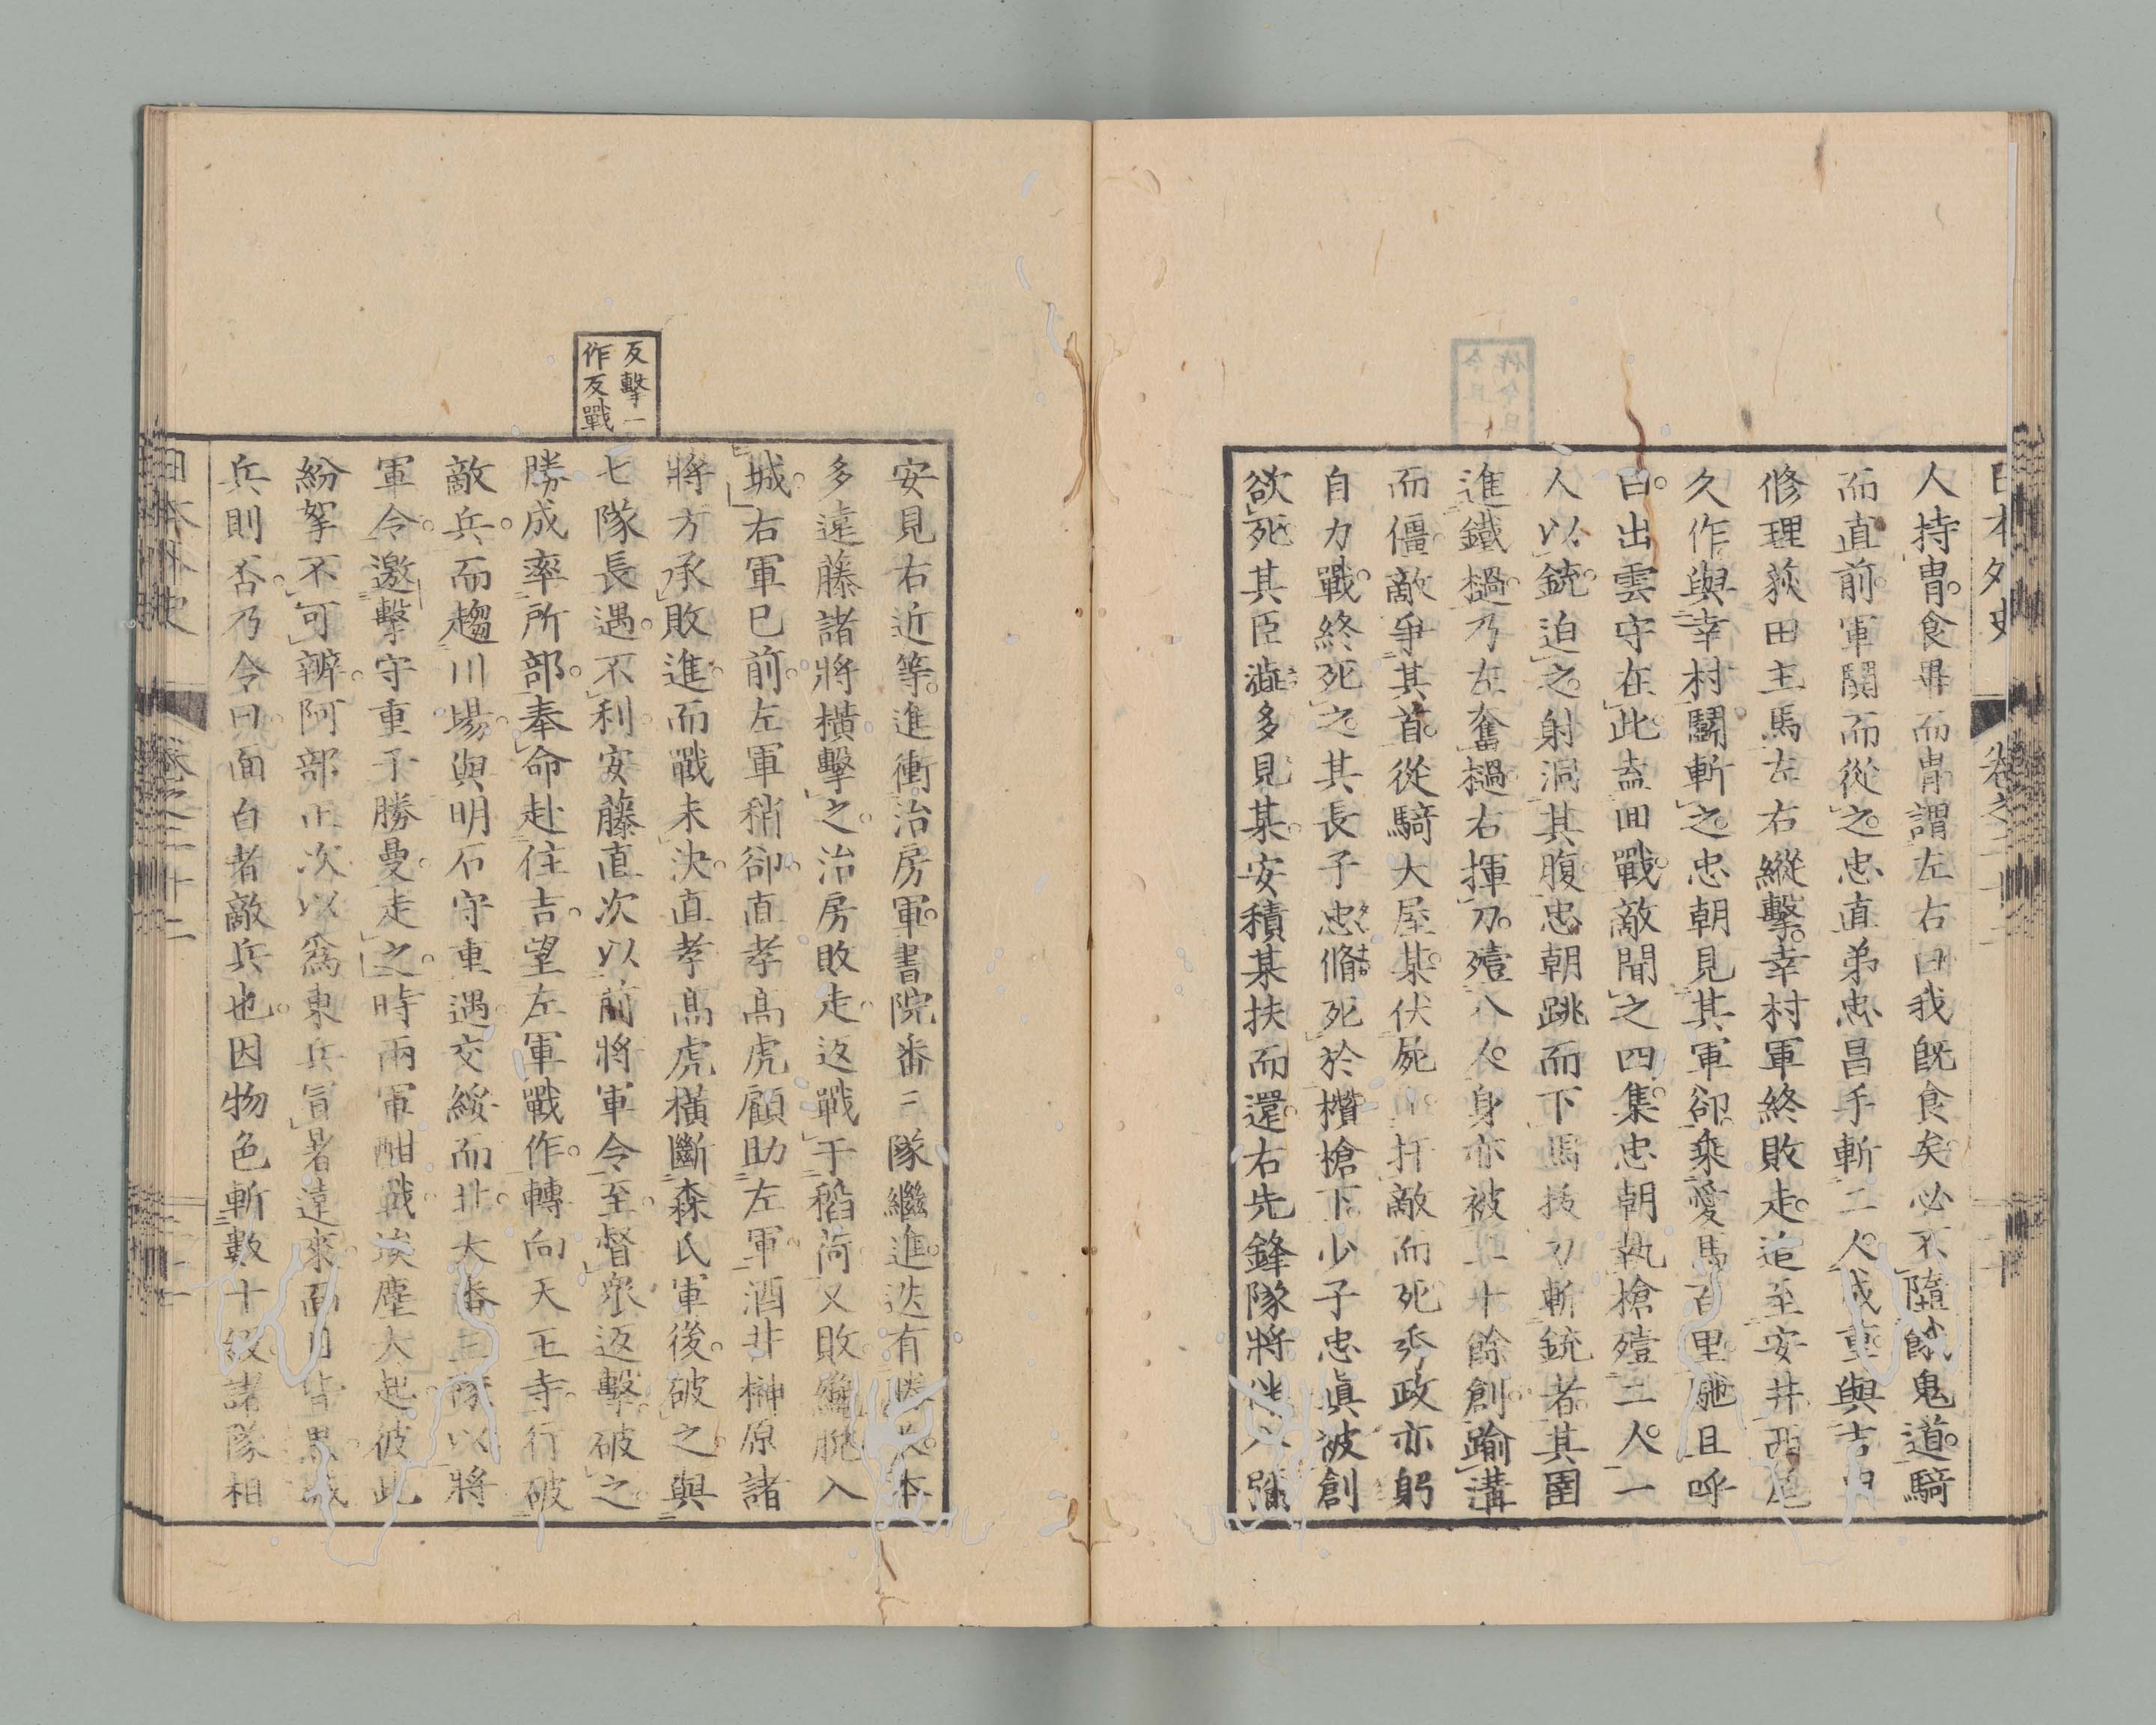 日本外史 卷之二十二
人持胄食畢而胄謂左右曰我既食矣必不墮餓鬼道騎
而直前軍鬪而從之忠直弟忠昌手斬二人成重與吉田
修理荻田主馬左右縱擊幸村軍終敗走追至安井西尾
久作與幸村鬪斬之忠朝見其軍卻乘愛馬百里馳且呼
曰出雲守在此盍囬戰敵聞之四集忠朝執槍殪二人一
人以銃迫之射洞其腹忠朝跳而下馬拔刀斬銃者其圉
進鐵檛乃左奮檛右揮刀殪八人身亦被二十餘創踰溝
而僵敵爭其首從騎大屋某伏屍 扞敵而死秀政亦躬
自力戰終死之其長子忠脩死於欑槍下少子忠眞被創
欲死其臣 多見某安積某扶而還右先鋒隊將
安見右近等進衝治房軍書院番三隊繼進迭有勝 本
多遠藤諸將橫擊之治房敗走返戰于稻荷又敗 脫入
城右軍已前左軍稍卻直孝高虎顧助左軍酒井榊原諸
將方承敗進而戰未決直孝高虎橫斷森氏軍後破之與
七隊長遇不利安藤直次以前將軍令至督衆返擊破之
勝成率所部奉命赴住吉望左軍戰作轉向天王寺行破
敵兵而趨川場與明石守重遇交綏而北大番三隊以將
軍令邀擊守重于勝曼走之時兩軍酣戰埃塵大起彼此
紛拏不可辨阿部正次以爲東兵冒暑遠來面目皆黑
兵則否乃令曰面白者敵兵也因物色斬數十級諸隊相
反擊一
作反戰
日本外史 卷之二十二